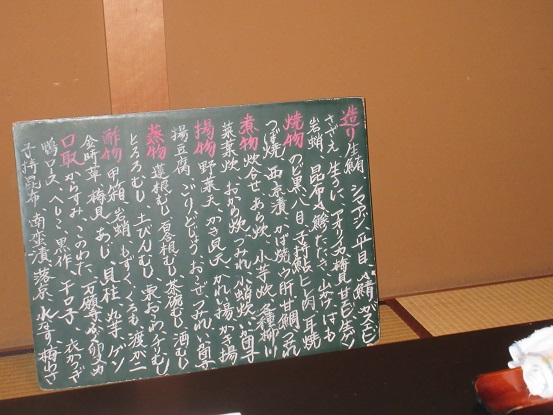 造り 生鮪 シマアジ、平目 〆鯖 ガスエビ
さざえ 生うに、アオリイカ 梅貝 甘エビ 生ダコ
岩蛸 昆布〆 鯵たたき、山かけ はも
焼物 のど黒 八目 子持鮎 ヒレ肉 耳焼
つぼ焼 西京漬 かば焼 ウ肝 甘鯛 つみれ
煮物 炊合せ、あら炊 小芋炊 各種柳川
菜葉炊 おから炊、つみれ 小蛸炊 治部
揚物 野菜天、かき 貝天 かれい揚 かき揚
揚豆腐 ごり どじょう、おこぜ つみれ
蒸物 蓮根むし 百合根むし 茶碗むし 酒むし
とろろむし、土びんむし 栗おこわ
酢物 甲箱 岩蛸 もずく、くらげ 渡かに
金時草 梅貝 あじ、貝柱 丸芋
口取 からすみ、このわた、石願寺ふぐ卵ぬか
鴨ロース へしこ 黒作 キロ子 衣かつぎ
子持昆布 南蛮漬、落花 水なす 梅くらげ